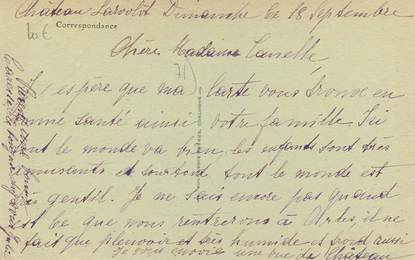 Château Laroolot Dimanche le 18 Septembre
10 €
Correspondance
Chère Madame
71
J'espère que ma carte vous trouve en
bonne santé ainsi votre famille. Ici
tout le monde va bien les enfants sont très
amusants et tout le monde est
très gentil. Je ne sais encore pas quand
est ce que nous rentrerons à Arles, il ne
fait que pleuvoir et très humide et froid aussi
Je vous envoie une vue du Château